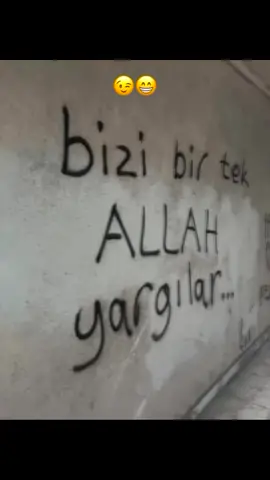 😉😁
bizi bir tek
ALLAH
yargılar...